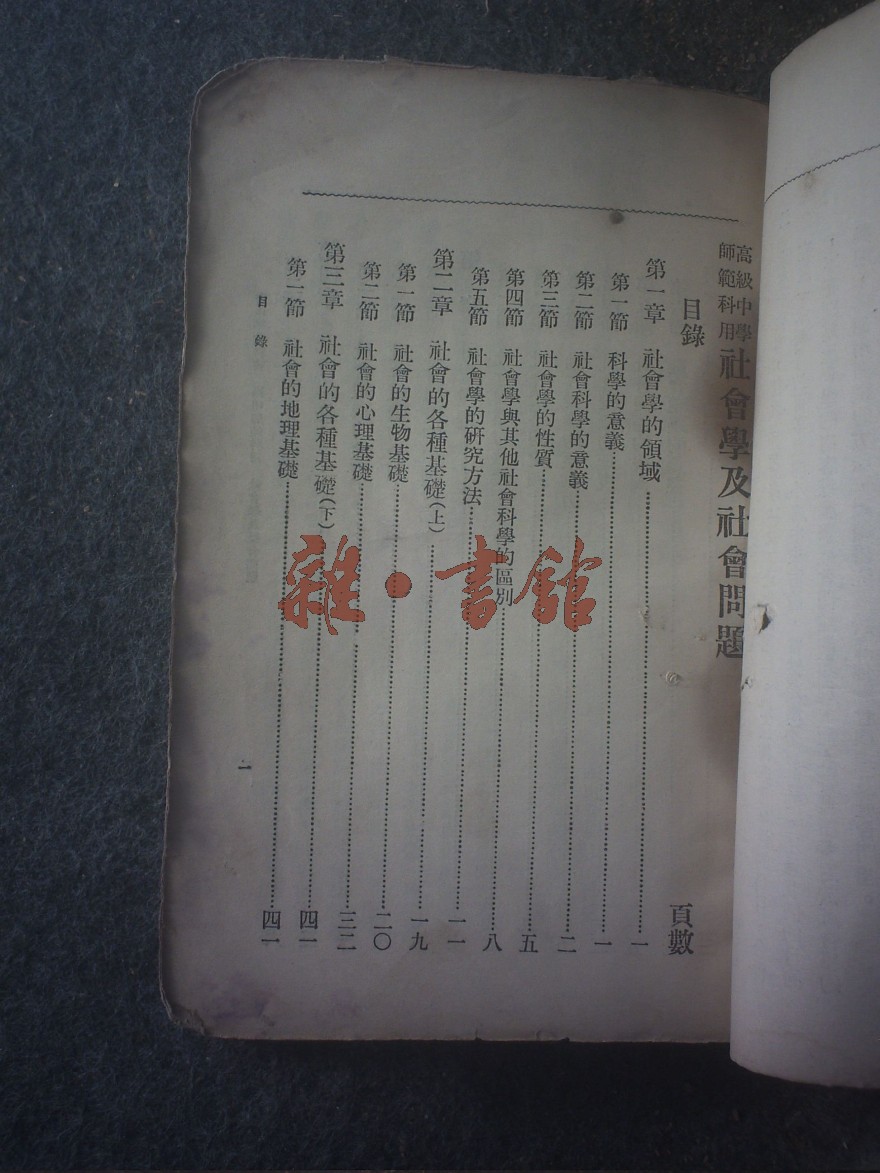 高級中學
師範科用
社會學及社會問題
目錄
頁數
第一章 社會學的領域 一
第一節 科學的意義 一
第二節 社會科學的意義 二
第三節 社會學的性質 五
第四節 社會學與其他社會科學的區別 八
第五節 社會學的研究方法 一一
第二章 社會的各種基礎(上) 一九
第一節 社會的生物基礎 二〇
第二節 社會的心理基礎 三二
第三章 社會的各種基礎(下) 四一
第一節 社會的地理基礎 四一
目錄
一
雜·書館